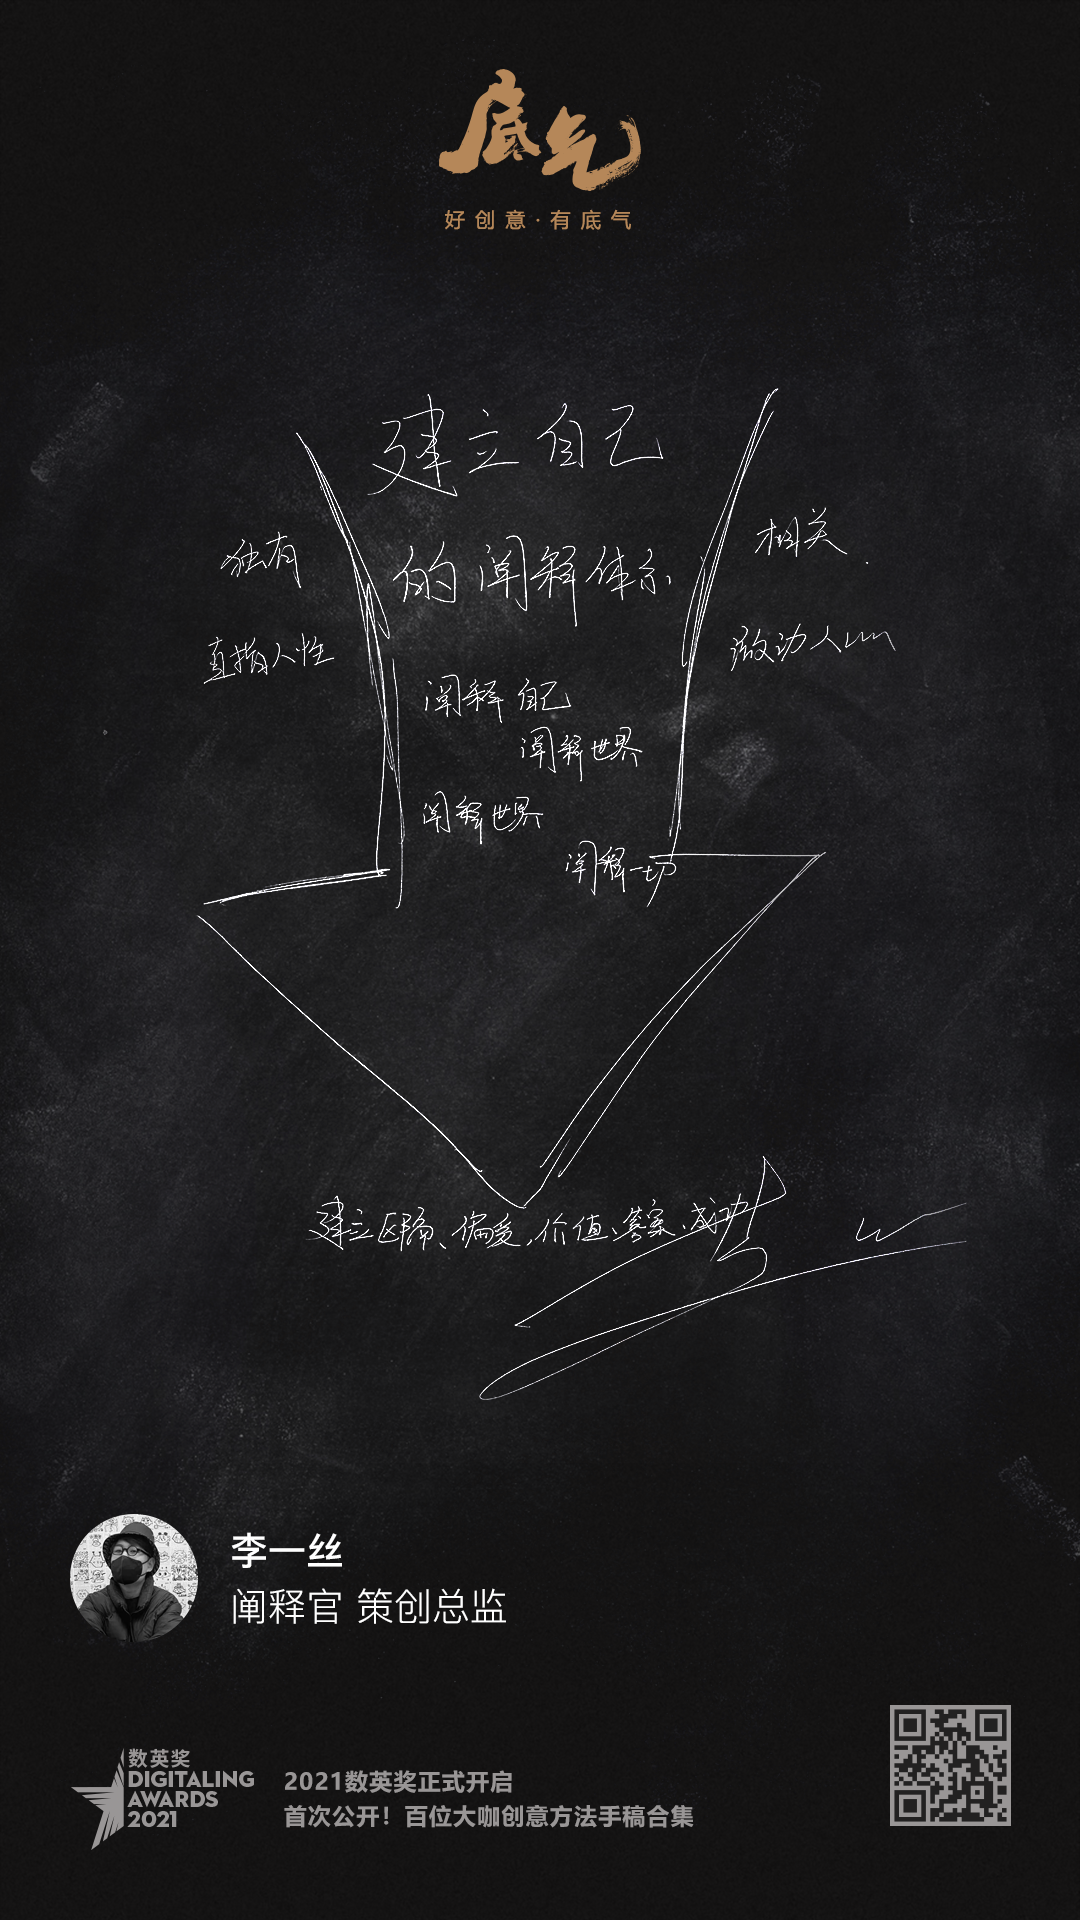 底气
好创意·有底气
建立自己
的阐释体系
独有
相关
直指人性
激动人心
阐释自己
阐释世界
阐释世界
阐释一切
建立区隔、偏爱、价值、答案、成功
李一丝
阐释官 策创总监
数英奖
DIGITALING
AWARDS
2021
2021数英奖正式开启
首次公开！百位大咖创意方法手稿合集